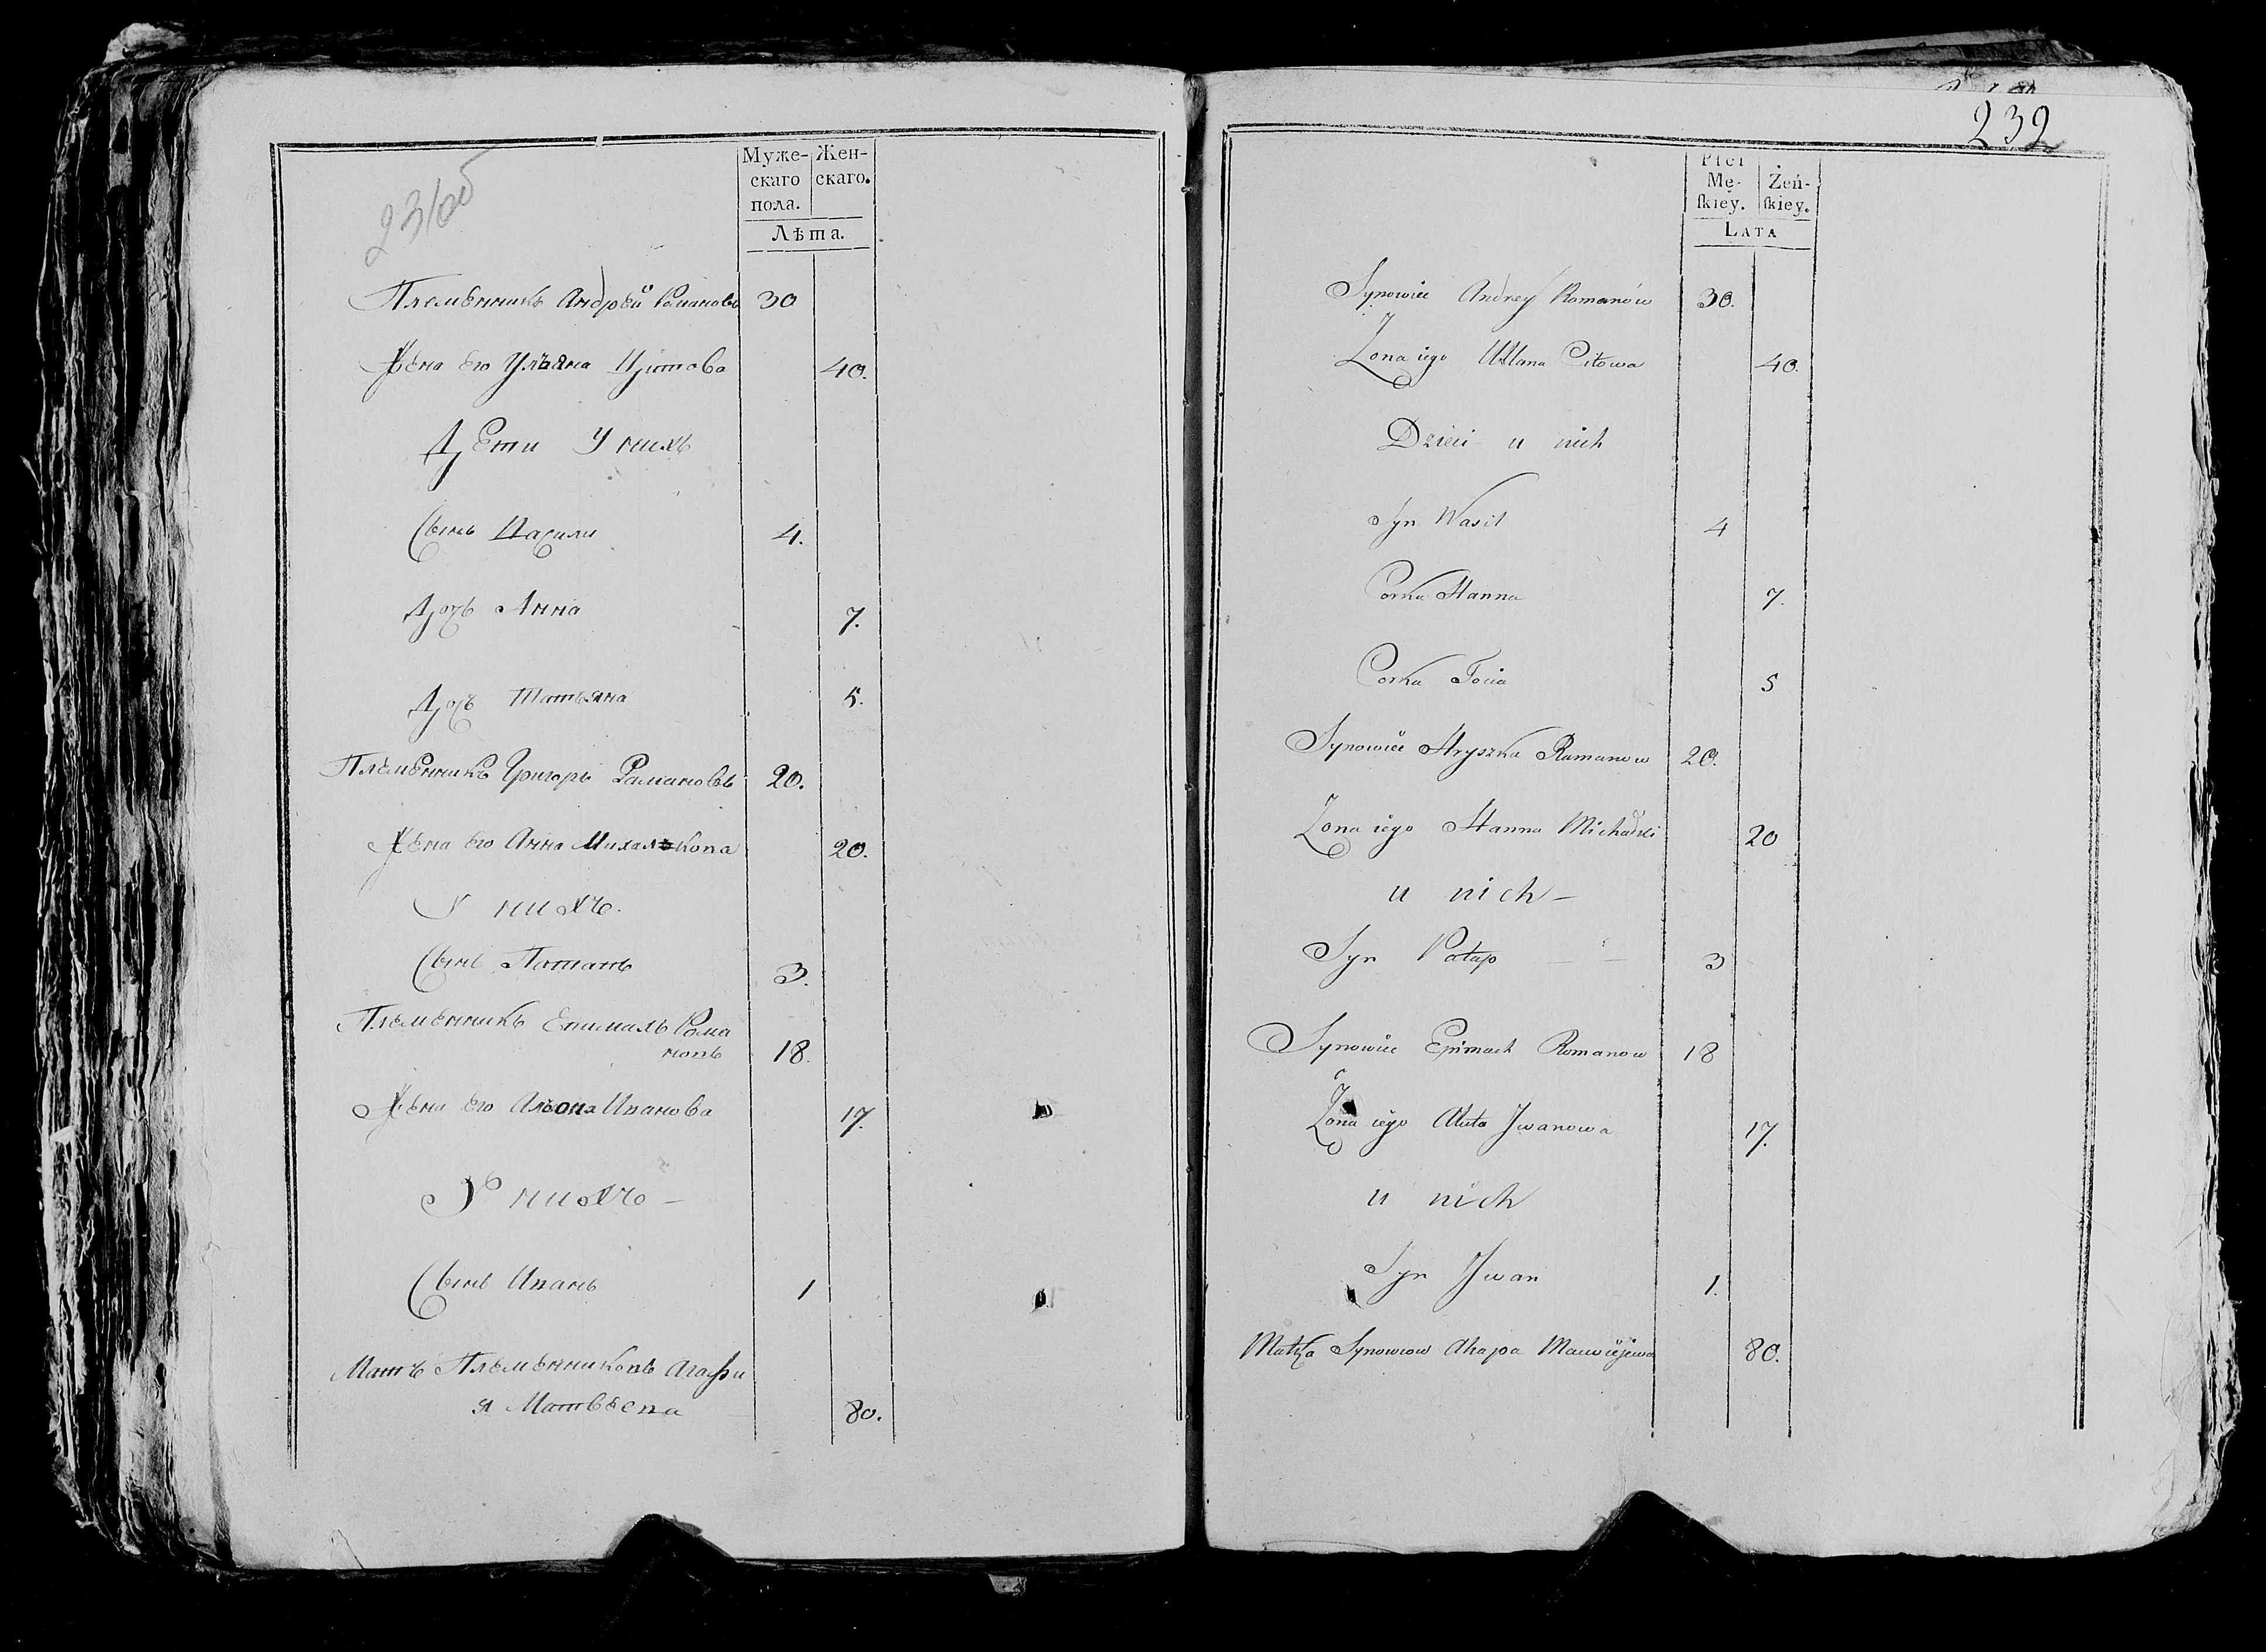 231об
Муже-
скаго
пола.
Жен-
скаго.
Лѣта.
Племѣнникъ Андрѣй Романовъ 30
Жѣна Его Ульяна Цитова 40.
Дѣти У нихъ
Сынъ Васили 4.
Дочь Анна 7.
Дочь Татьяна 5.
Племѣнникъ Григоръ Рамановъ 20.
Жѣна Его Анна Михалькова 20.
У нихъ.
Сынъ Потапъ 3.
Племѣнникъ Епимахъ Рома
новъ 18.
Жѣна Его Алѣона Иванова 17.
У нихъ —
Сынъ Иванъ 1
Мать Племѣнниковъ Агафи
я Матвѣева 80.
232
Płci
Mę-
ſkiey.
Żeń-
ſkiey.
LATA
Synowiec Andrey Romanów 30.
Zona iego Ullana Citowa 40.
Dzieci u nich
Syn Wasil 4
Corka Hanna 7.
Corka Tocia 5
Synowiec Hryszka Ramanow 20.
Zona iego Hanna Michałki 20
u nich —
Syn Potap 3
Synowiec Epimach Romanow 18
Zona iego Iwanowa 17.
u nich
Syn Iwan 1.
Matka Synowcow Ahapa Maciejewa 80.